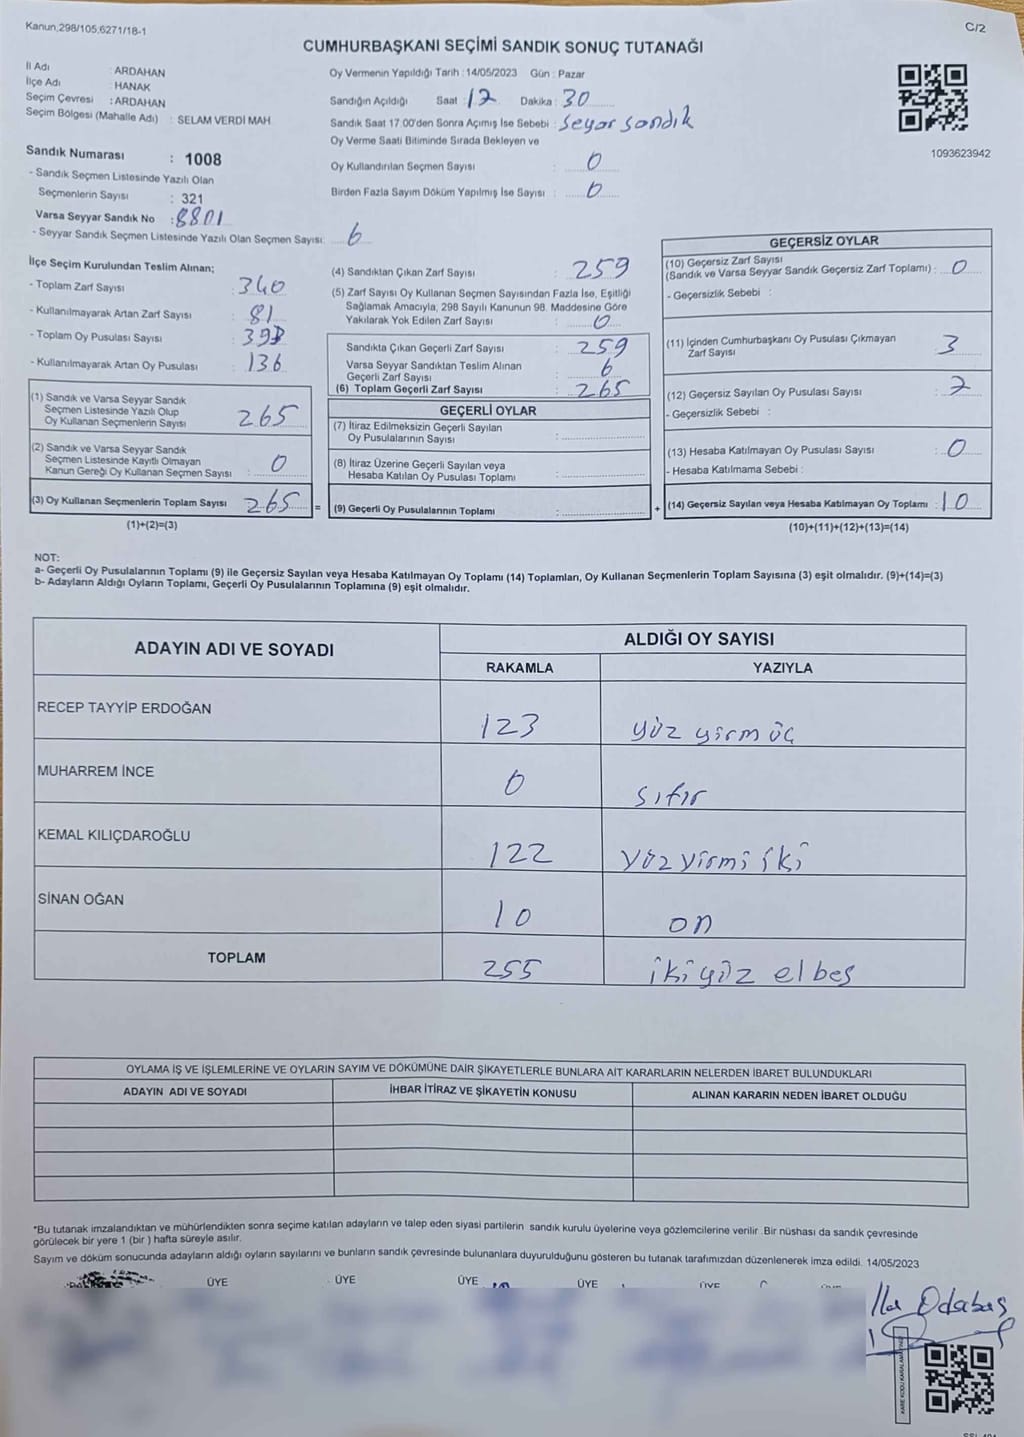 Kanun,298/105,6271/18-1
C/2
CUMHURBAŞKANI SEÇİMİ SANDIK SONUÇ TUTANAĞI
İl Adı : ARDAHAN
İlçe Adı : HANAK
Seçim Çevresi : ARDAHAN
Seçim Bölgesi (Mahalle Adı) : SELAM VERDİ MAH.
Sandık Numarası : 1008
- Sandık Seçmen Listesinde Yazılı Olan
Seçmenlerin Sayısı : 321
Varsa Seyyar Sandık No : 8801
- Seyyar Sandık Seçmen Listesinde Yazılı Olan Seçmen Sayısı: 6
Oy Vermenin Yapıldığı Tarih : 14/05/2023 Gün : Pazar
Sandığın Açıldığı Saat : 17 Dakika : 30
Sandık Saat 17:00'den Sonra Açımış İse Sebebi : Seyar sandık
Oy Verme Saati Bitiminde Sırada Bekleyen ve
Oy Kullandırılan Seçmen Sayısı : 0
Birden Fazla Sayım Döküm Yapılmış İse Sayısı : 0
1093623942
İlçe Seçim Kurulundan Teslim Alınan;
- Toplam Zarf Sayısı : 340
- Kullanılmayarak Artan Zarf Sayısı : 81
- Toplam Oy Pusulası Sayısı :
- Kullanılmayarak Artan Oy Pusulası : 136
(1) Sandık ve Varsa Seyyar Sandık
Seçmen Listesinde Yazılı Olup
Oy Kullanan Seçmenlerin Sayısı : 265
(2) Sandık ve Varsa Seyyar Sandık
Seçmen Listesinde Kayıtlı Olmayan
Kanun Gereği Oy Kullanan Seçmen Sayısı : 0
(3) Oy Kullanan Seçmenlerin Toplam Sayısı : 265 =
(1)+(2)=(3)
(4) Sandıktan Çıkan Zarf Sayısı : 259
(5) Zarf Sayısı Oy Kullanan Seçmen Sayısından Fazla İse, Eşitliği
Sağlamak Amacıyla, 298 Sayılı Kanunun 98. Maddesine Göre
Yakılarak Yok Edilen Zarf Sayısı : 0
Sandıkta Çıkan Geçerli Zarf Sayısı : 259
Varsa Seyyar Sandıktan Teslim Alınan
Geçerli Zarf Sayısı : 6
(6) Toplam Geçerli Zarf Sayısı : 265
GEÇERLİ OYLAR
(7) İtiraz Edilmeksizin Geçerli Sayılan
Oy Pusulalarının Sayısı :
(8) İtiraz Üzerine Geçerli Sayılan veya
Hesaba Katılan Oy Pusulası Toplamı :
(9) Geçerli Oy Pusulalarının Toplamı : +
GEÇERSİZ OYLAR
(10) Geçersiz Zarf Sayısı
(Sandık ve Varsa Seyyar Sandık Geçersiz Zarf Toplamı) : 0
- Geçersizlik Sebebi :
(11) İçinden Cumhurbaşkanı Oy Pusulası Çıkmayan
Zarf Sayısı : 3
(12) Geçersiz Sayılan Oy Pusulası Sayısı : 7
- Geçersizlik Sebebi :
(13) Hesaba Katılmayan Oy Pusulası Sayısı : 0
- Hesaba Katılmama Sebebi :
(14) Geçersiz Sayılan veya Hesaba Katılmayan Oy Toplamı : 10
(10)+(11)+(12)+(13)=(14)
NOT:
a- Geçerli Oy Pusulalarının Toplamı (9) ile Geçersiz Sayılan veya Hesaba Katılmayan Oy Toplamı (14) Toplamları, Oy Kullanan Seçmenlerin Toplam Sayısına (3) eşit olmalıdır. (9)+(14)=(3)
b- Adayların Aldığı Oyların Toplamı, Geçerli Oy Pusulalarının Toplamına (9) eşit olmalıdır.
ADAYIN ADI VE SOYADI ALDIĞI OY SAYISI
RAKAMLA YAZIYLA
RECEP TAYYİP ERDOĞAN 123 yüz yirm üç
MUHARREM İNCE 0 sıfır
KEMAL KILIÇDAROĞLU 122 yüz yirmi iki
SİNAN OĞAN 10 on
TOPLAM 255 ikiyüz elbeş
OYLAMA İŞ VE İŞLEMLERİNE VE OYLARIN SAYIM VE DÖKÜMÜNE DAİR ŞİKAYETLERLE BUNLARA AİT KARARLARIN NELERDEN İBARET BULUNDUKLARI
ADAYIN ADI VE SOYADI İHBAR İTİRAZ VE ŞİKAYETİN KONUSU ALINAN KARARIN NEDEN İBARET OLDUĞU
*Bu tutanak imzalandıktan ve mühürlendikten sonra seçime katılan adayların ve talep eden siyasi partilerin sandık kurulu üyelerine veya gözlemcilerine verilir. Bir nüshası da sandık çevresinde
görülecek bir yere 1 (bir ) hafta süreyle asılır.
Sayım ve döküm sonucunda adayların aldığı oyların sayılarını ve bunların sandık çevresinde bulunanlara duyurulduğunu gösteren bu tutanak tarafımızdan düzenlenerek imza edildi. 14/05/2023
ÜYE ÜYE ÜYE ÜYE ÜYE
Odabaş